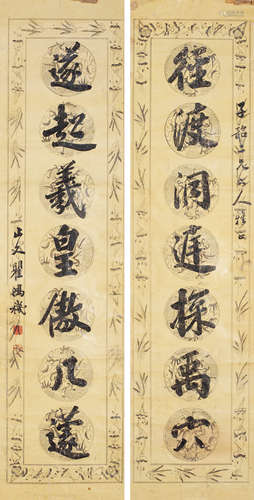 子韶十兄大人雅正
徑渡洞庭探禹穴
遂起羲皇傲八蓬
止文瞿鴻禨